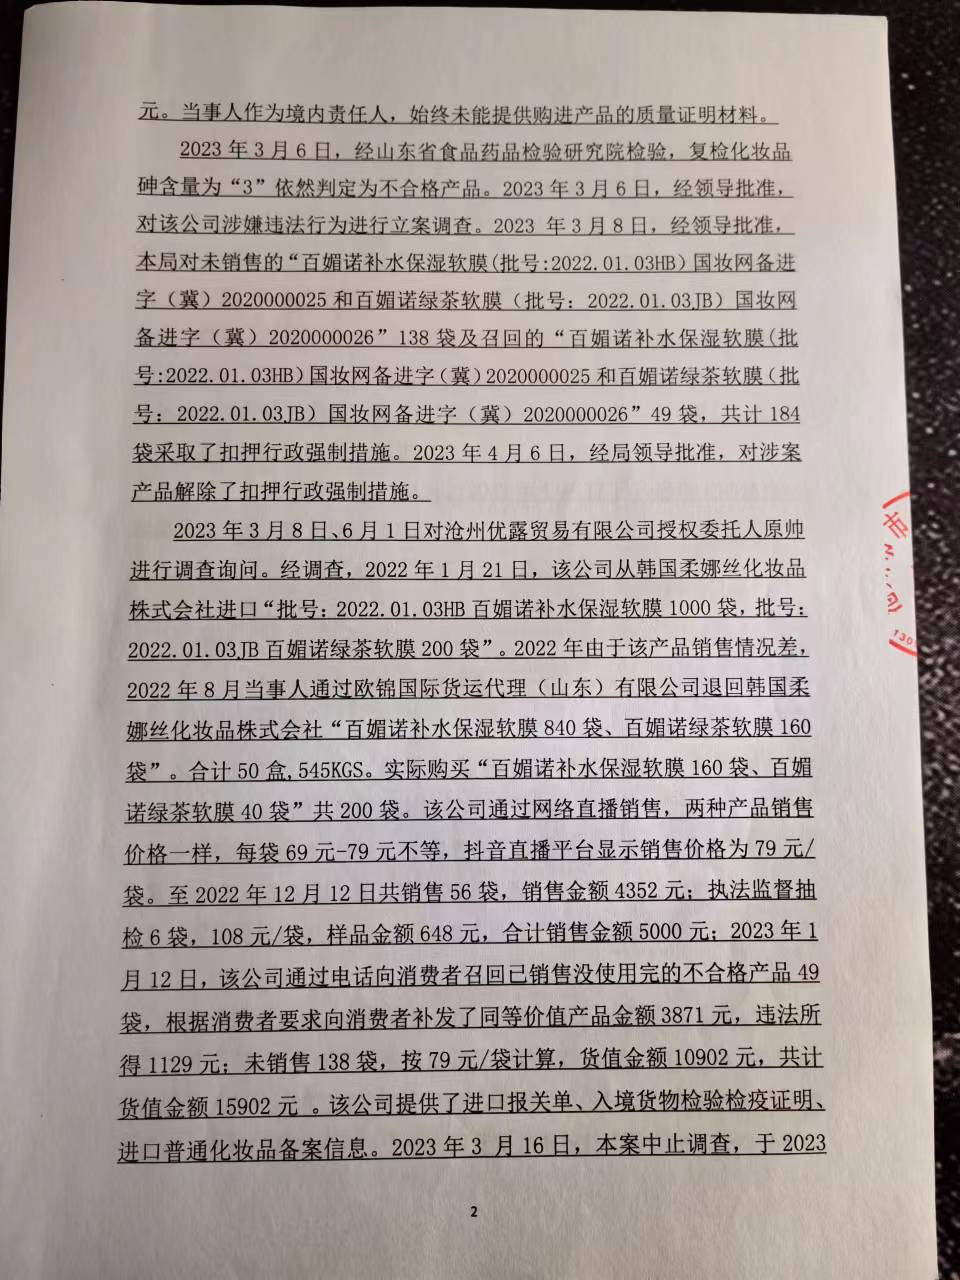 元。当事人作为境内责任人，始终未能提供购进产品的质量证明材料。
2023年3月6日，经山东省食品药品检验研究院检验，复检化妆品
砷含量为“3”依然判定为不合格产品。2023年3月6日，经领导批准，
对该公司涉嫌违法行为进行立案调查。2023 年3月8日，经领导批准，
本局对未销售的“百媚诺补水保湿软膜(批号:2022.01.03HB）国妆网备进
字（冀）2020000025和百媚诺绿茶软膜（批号：2022.01.03JB）国妆网
备进字（冀）2020000026”138袋及召回的“百媚诺补水保湿软膜(批
号:2022.01.03HB）国妆网备进字（冀）2020000025和百媚诺绿茶软膜（批
号：2022.01.03JB）国妆网备进字（冀）2020000026”49袋，共计184
袋采取了扣押行政强制措施。2023年4月6日，经局领导批准，对涉案
产品解除了扣押行政强制措施。
2023年3月8日、6月1日对沧州优露贸易有限公司授权委托人原帅
进行调查询问。经调查，2022年1月21日，该公司从韩国柔娜丝化妆品
株式会社进口“批号：2022.01.03HB百媚诺补水保湿软膜1000袋，批号：
2022.01.03JB百媚诺绿茶软膜200袋”。2022年由于该产品销售情况差，
2022年8月当事人通过欧锦国际货运代理（山东）有限公司退回韩国柔
娜丝化妆品株式会社“百媚诺补水保湿软膜840袋、百媚诺绿茶软膜160
袋”。合计50盒,545KGS。实际购买“百媚诺补水保湿软膜160袋、百媚
诺绿茶软膜40袋”共200袋。该公司通过网络直播销售，两种产品销售
价格一样，每袋69元-79元不等，抖音直播平台显示销售价格为79元/
袋。至2022年12月12日共销售56袋，销售金额4352元；执法监督抽
检6袋，108元/袋，样品金额648元，合计销售金额5000元；2023年1
月12日，该公司通过电话向消费者召回已销售没使用完的不合格产品49
袋，根据消费者要求向消费者补发了同等价值产品金额3871元，违法所
得1129元；未销售138袋，按79元/袋计算，货值金额10902元，共计
货值金额15902元 。该公司提供了进口报关单、入境货物检验检疫证明、
进口普通化妆品备案信息。2023年3 月16日，本案中止调查，于2023
2
市
130